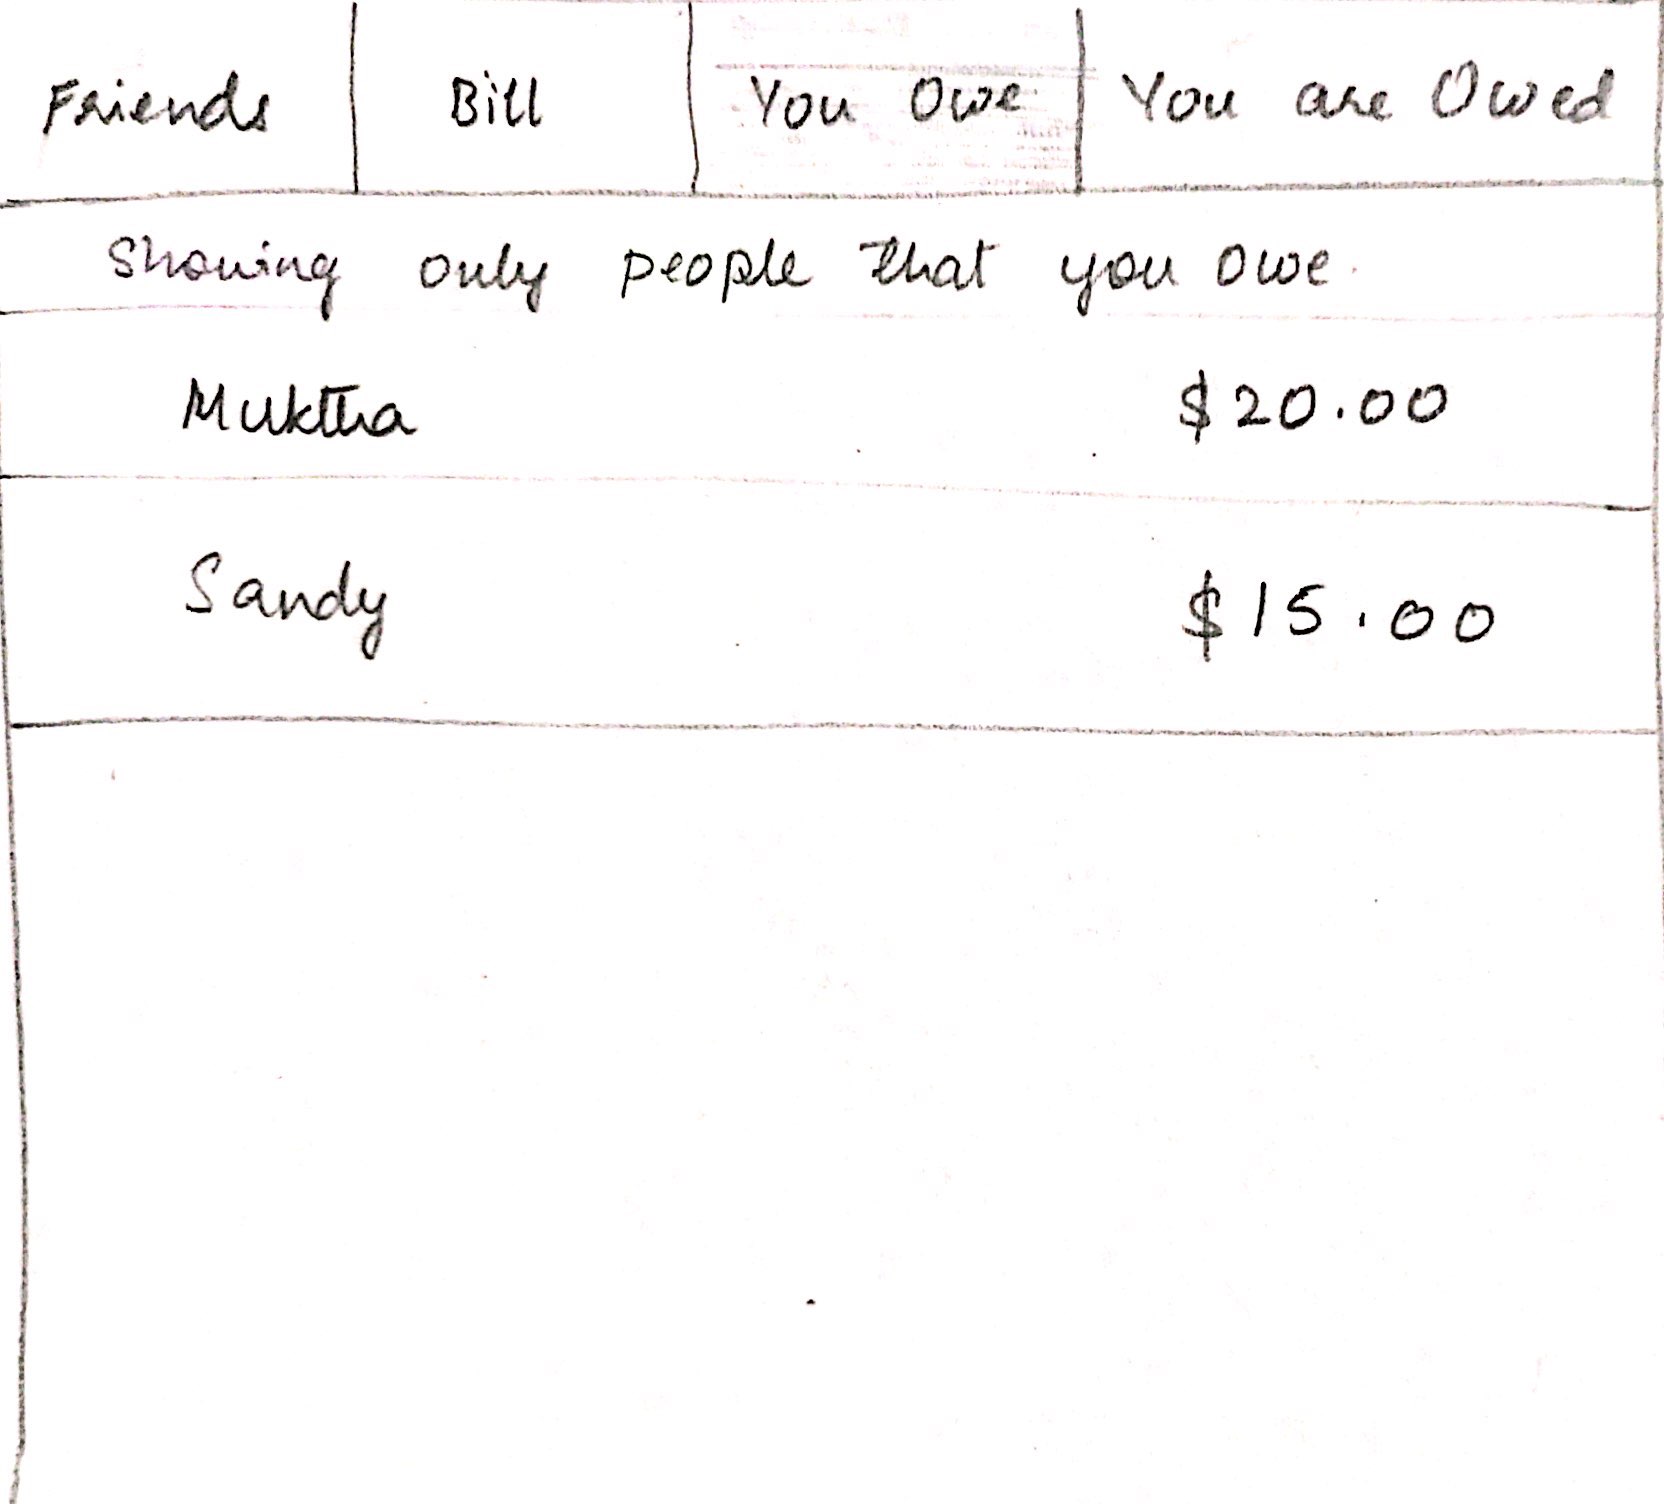 Friends Bill You Owe You are Owed
Showing only people that you owe.
Muktha $20.00
Sandy $15.00